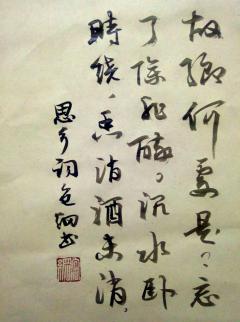 故鄉何處是，忘
了除非醉。沉水卧
時燒，香消酒未消，
思乡词
书